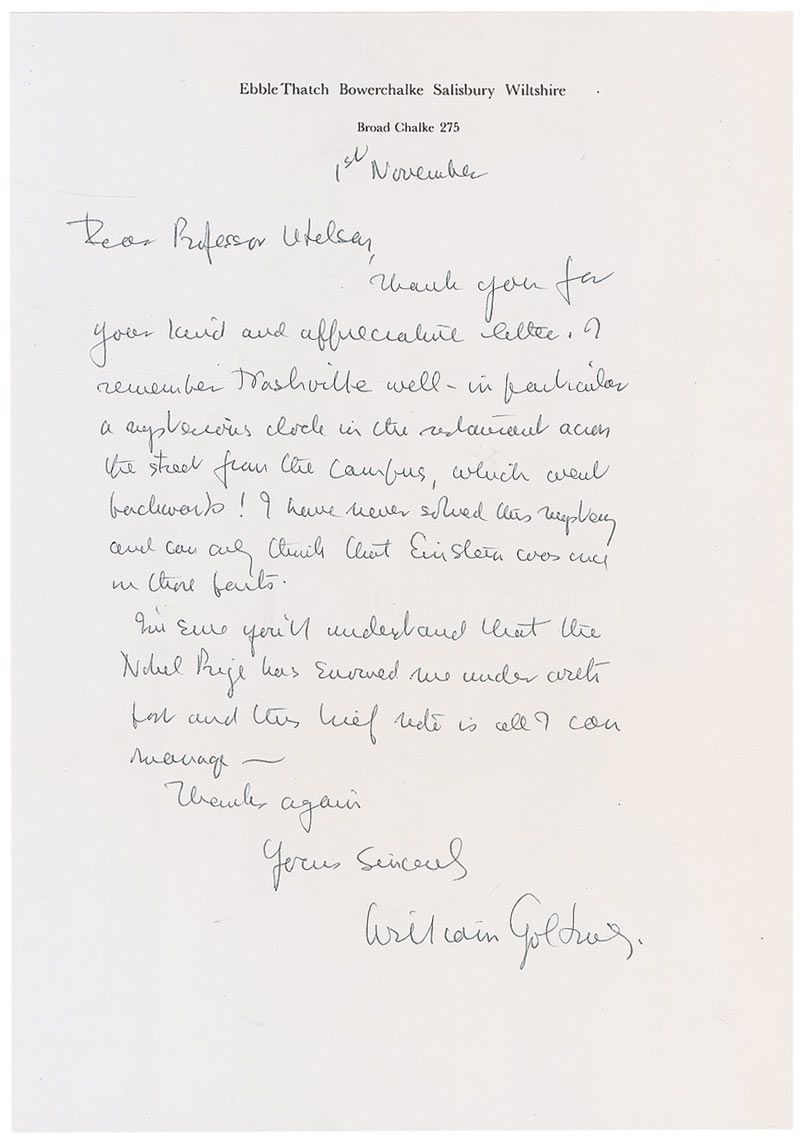 Ebble Thatch Bowerchalke Salisbury Wiltshire
Broad Chalke 275
1st November
Dear Professor
Thank you for
your kind and appreciative letter. I
remember Nashville well - in particular
a mysterious clock in the restaurant across
the street from the campus, which went
backwards! I have never solved this mystery
and can only think that Einstein was once
in those parts.
I'm sure you'll understand that the
Nobel Prize has snowed me under with
post and this brief note is all I can
manage —
Thanks again
Yours sincerely
William Golding.